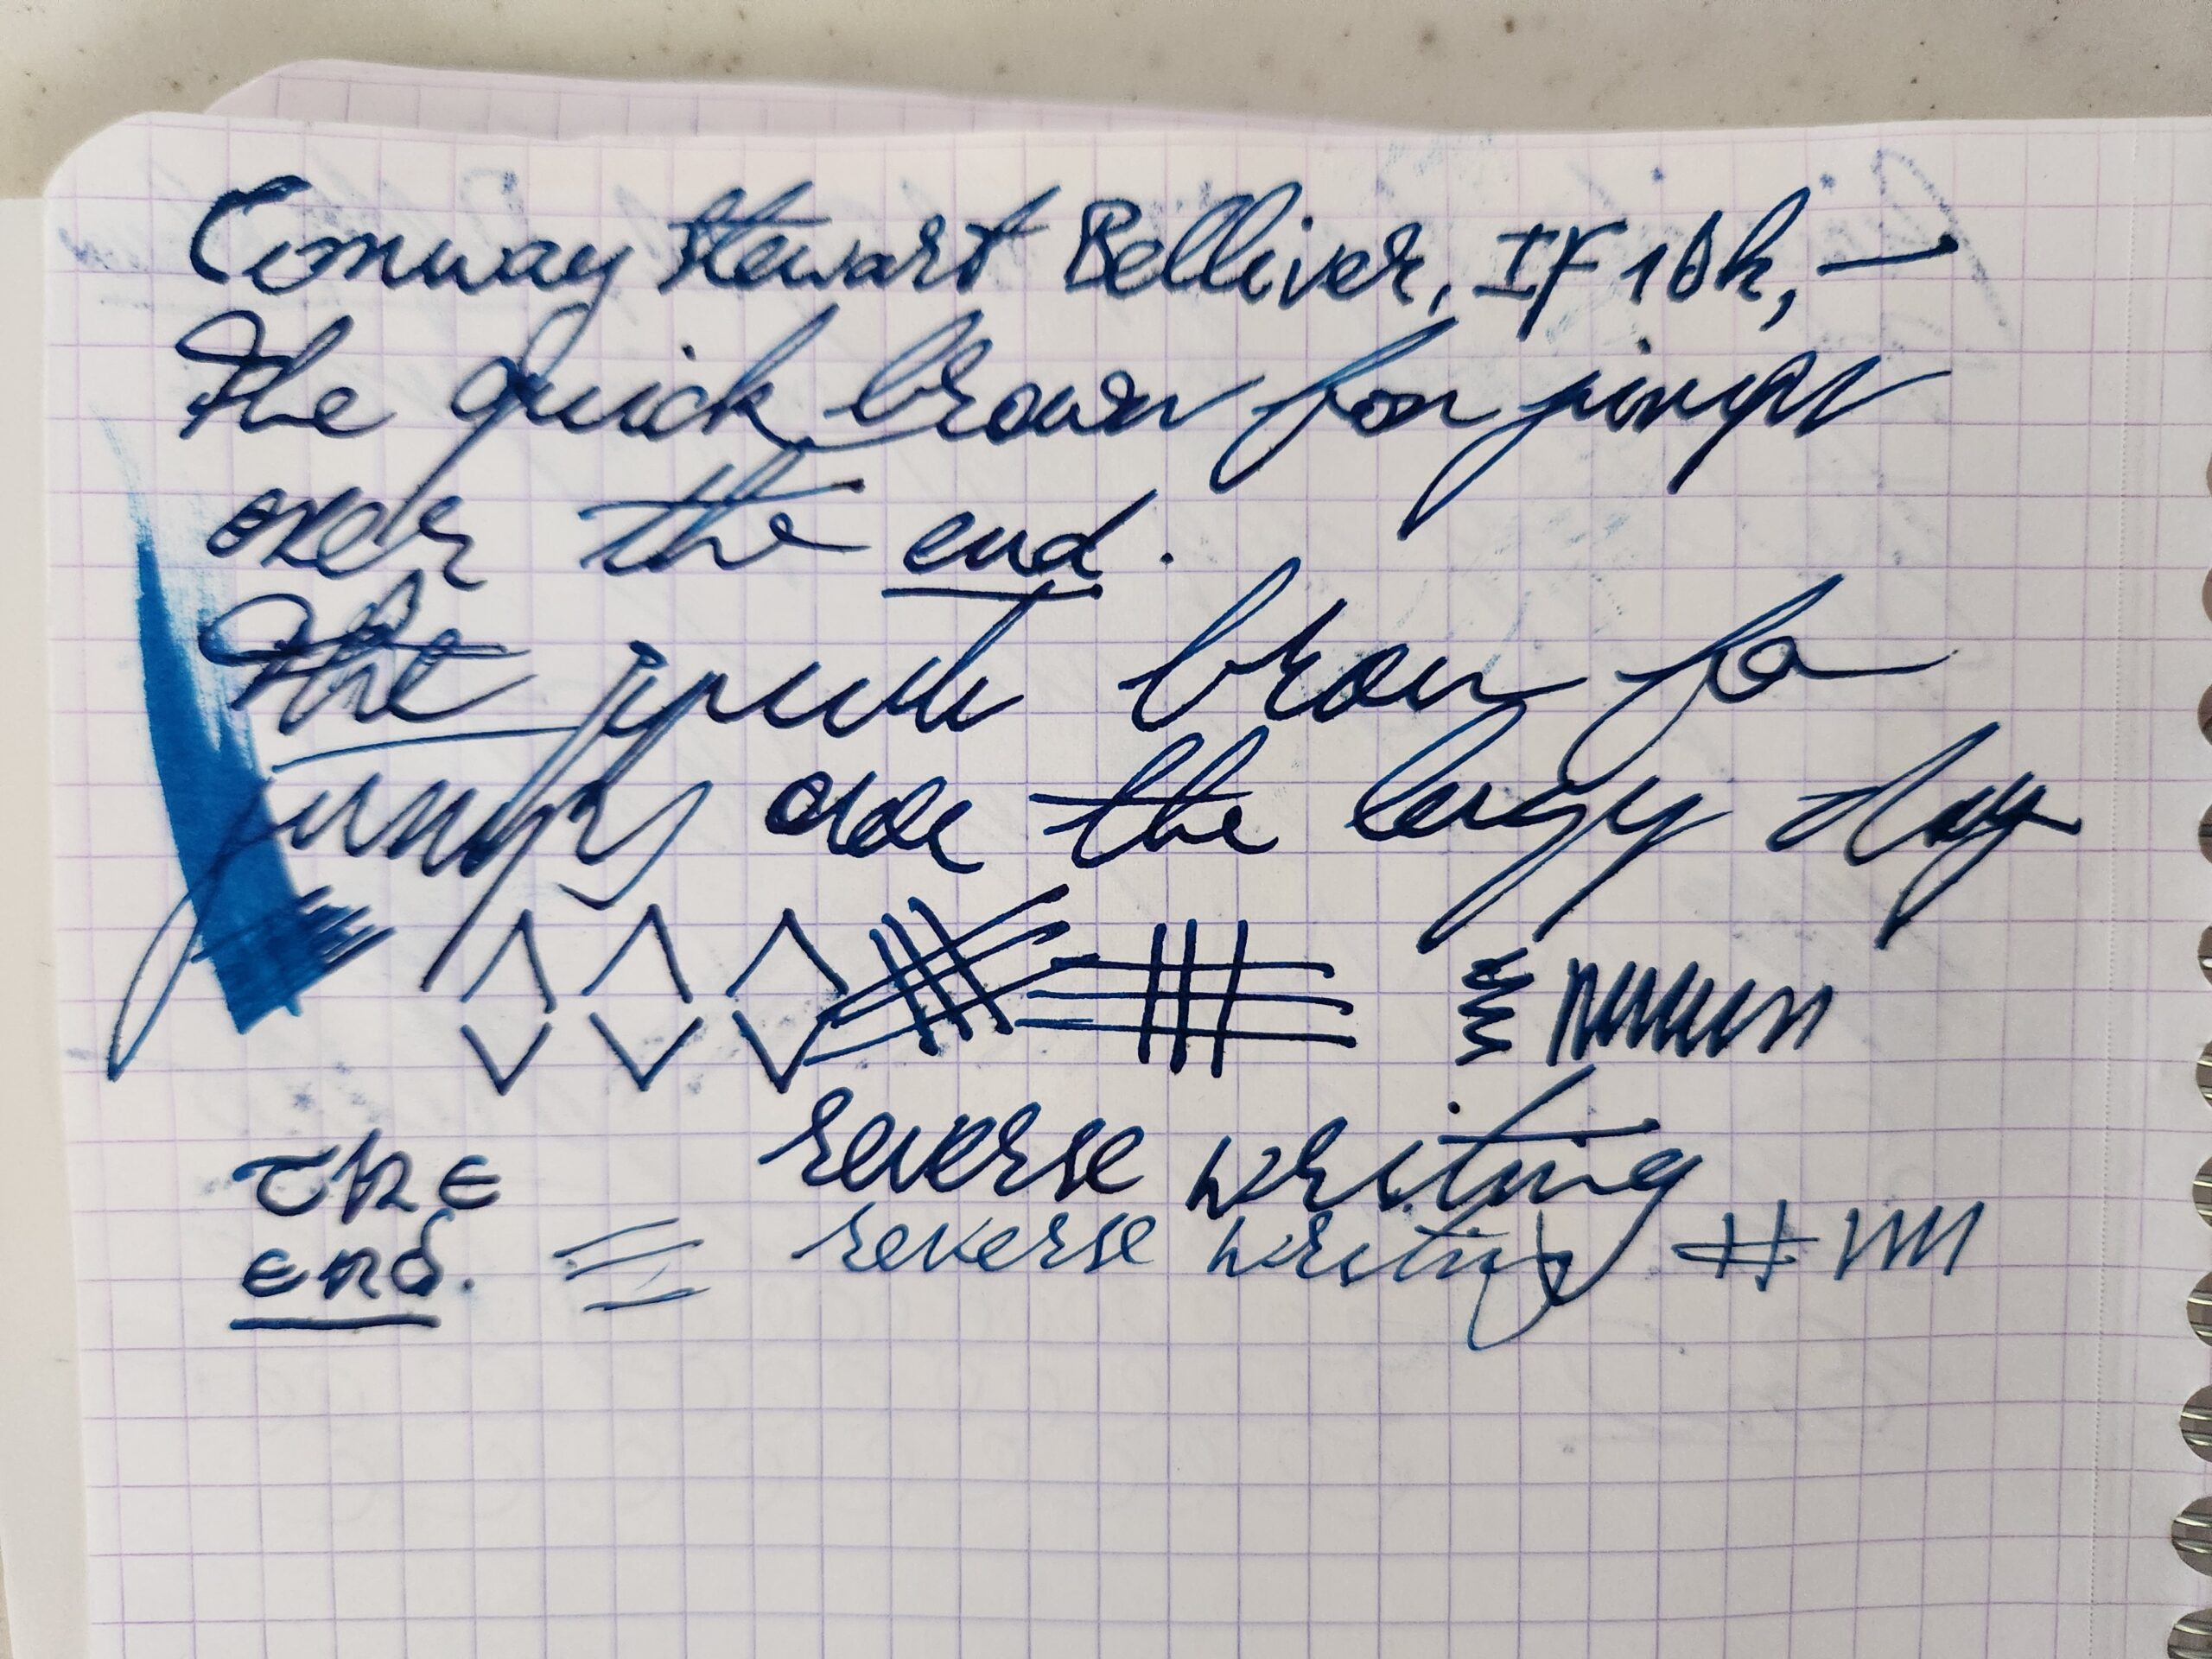 Conway Stewart Belliver, IF 18k, –
The quick brown fox jumps
over the end.
The quick brown fox
jumps over the lazy dog
reverse writing
the
end.
reverse writing